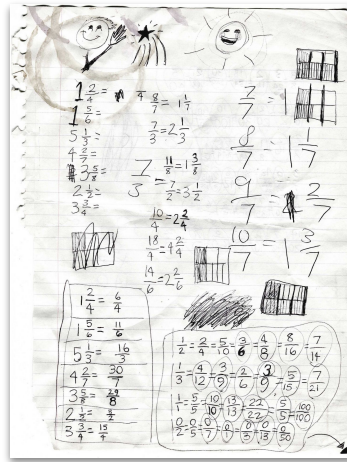 1 2/4 =
1 5/6 =
5 1/3 =
4 2/7 =
3 5/8 =
2 1/2 =
3 3/4 =
8/7 = 1 1/7
7/3 = 2 1/3
7/3
11/8 = 1 3/8
7/2 = 3 1/2
10/4 = 2 2/4
18/4 = 4 2/4
14/6 = 2 2/6
7/7 = 1
8/7 1 1/7
9/7 = 2/7
10/7 = 1 3/7
1 2/4 = 6/4
1 5/6 = 11/6
5 1/3 = 16/3
4 2/7 = 30/7
3 5/8 = 29/8
2 1/2 = 5/2
3 3/4 = 15/4
1/2 = 2/4 = 5/10 = 3/6 = 4/8 = 8/16 = 7/14
1/3 = 4/12 = 3/9 = 2/6 = 3/9 = 5/15 = 7/21
1/1 = 5/5 = 10/10 = 13/13 = 22/22 = 5/5 = 100/100
0/2 = 0/5 = 0/7 = 0/1 = 0/3 = 0/13 = 0/50